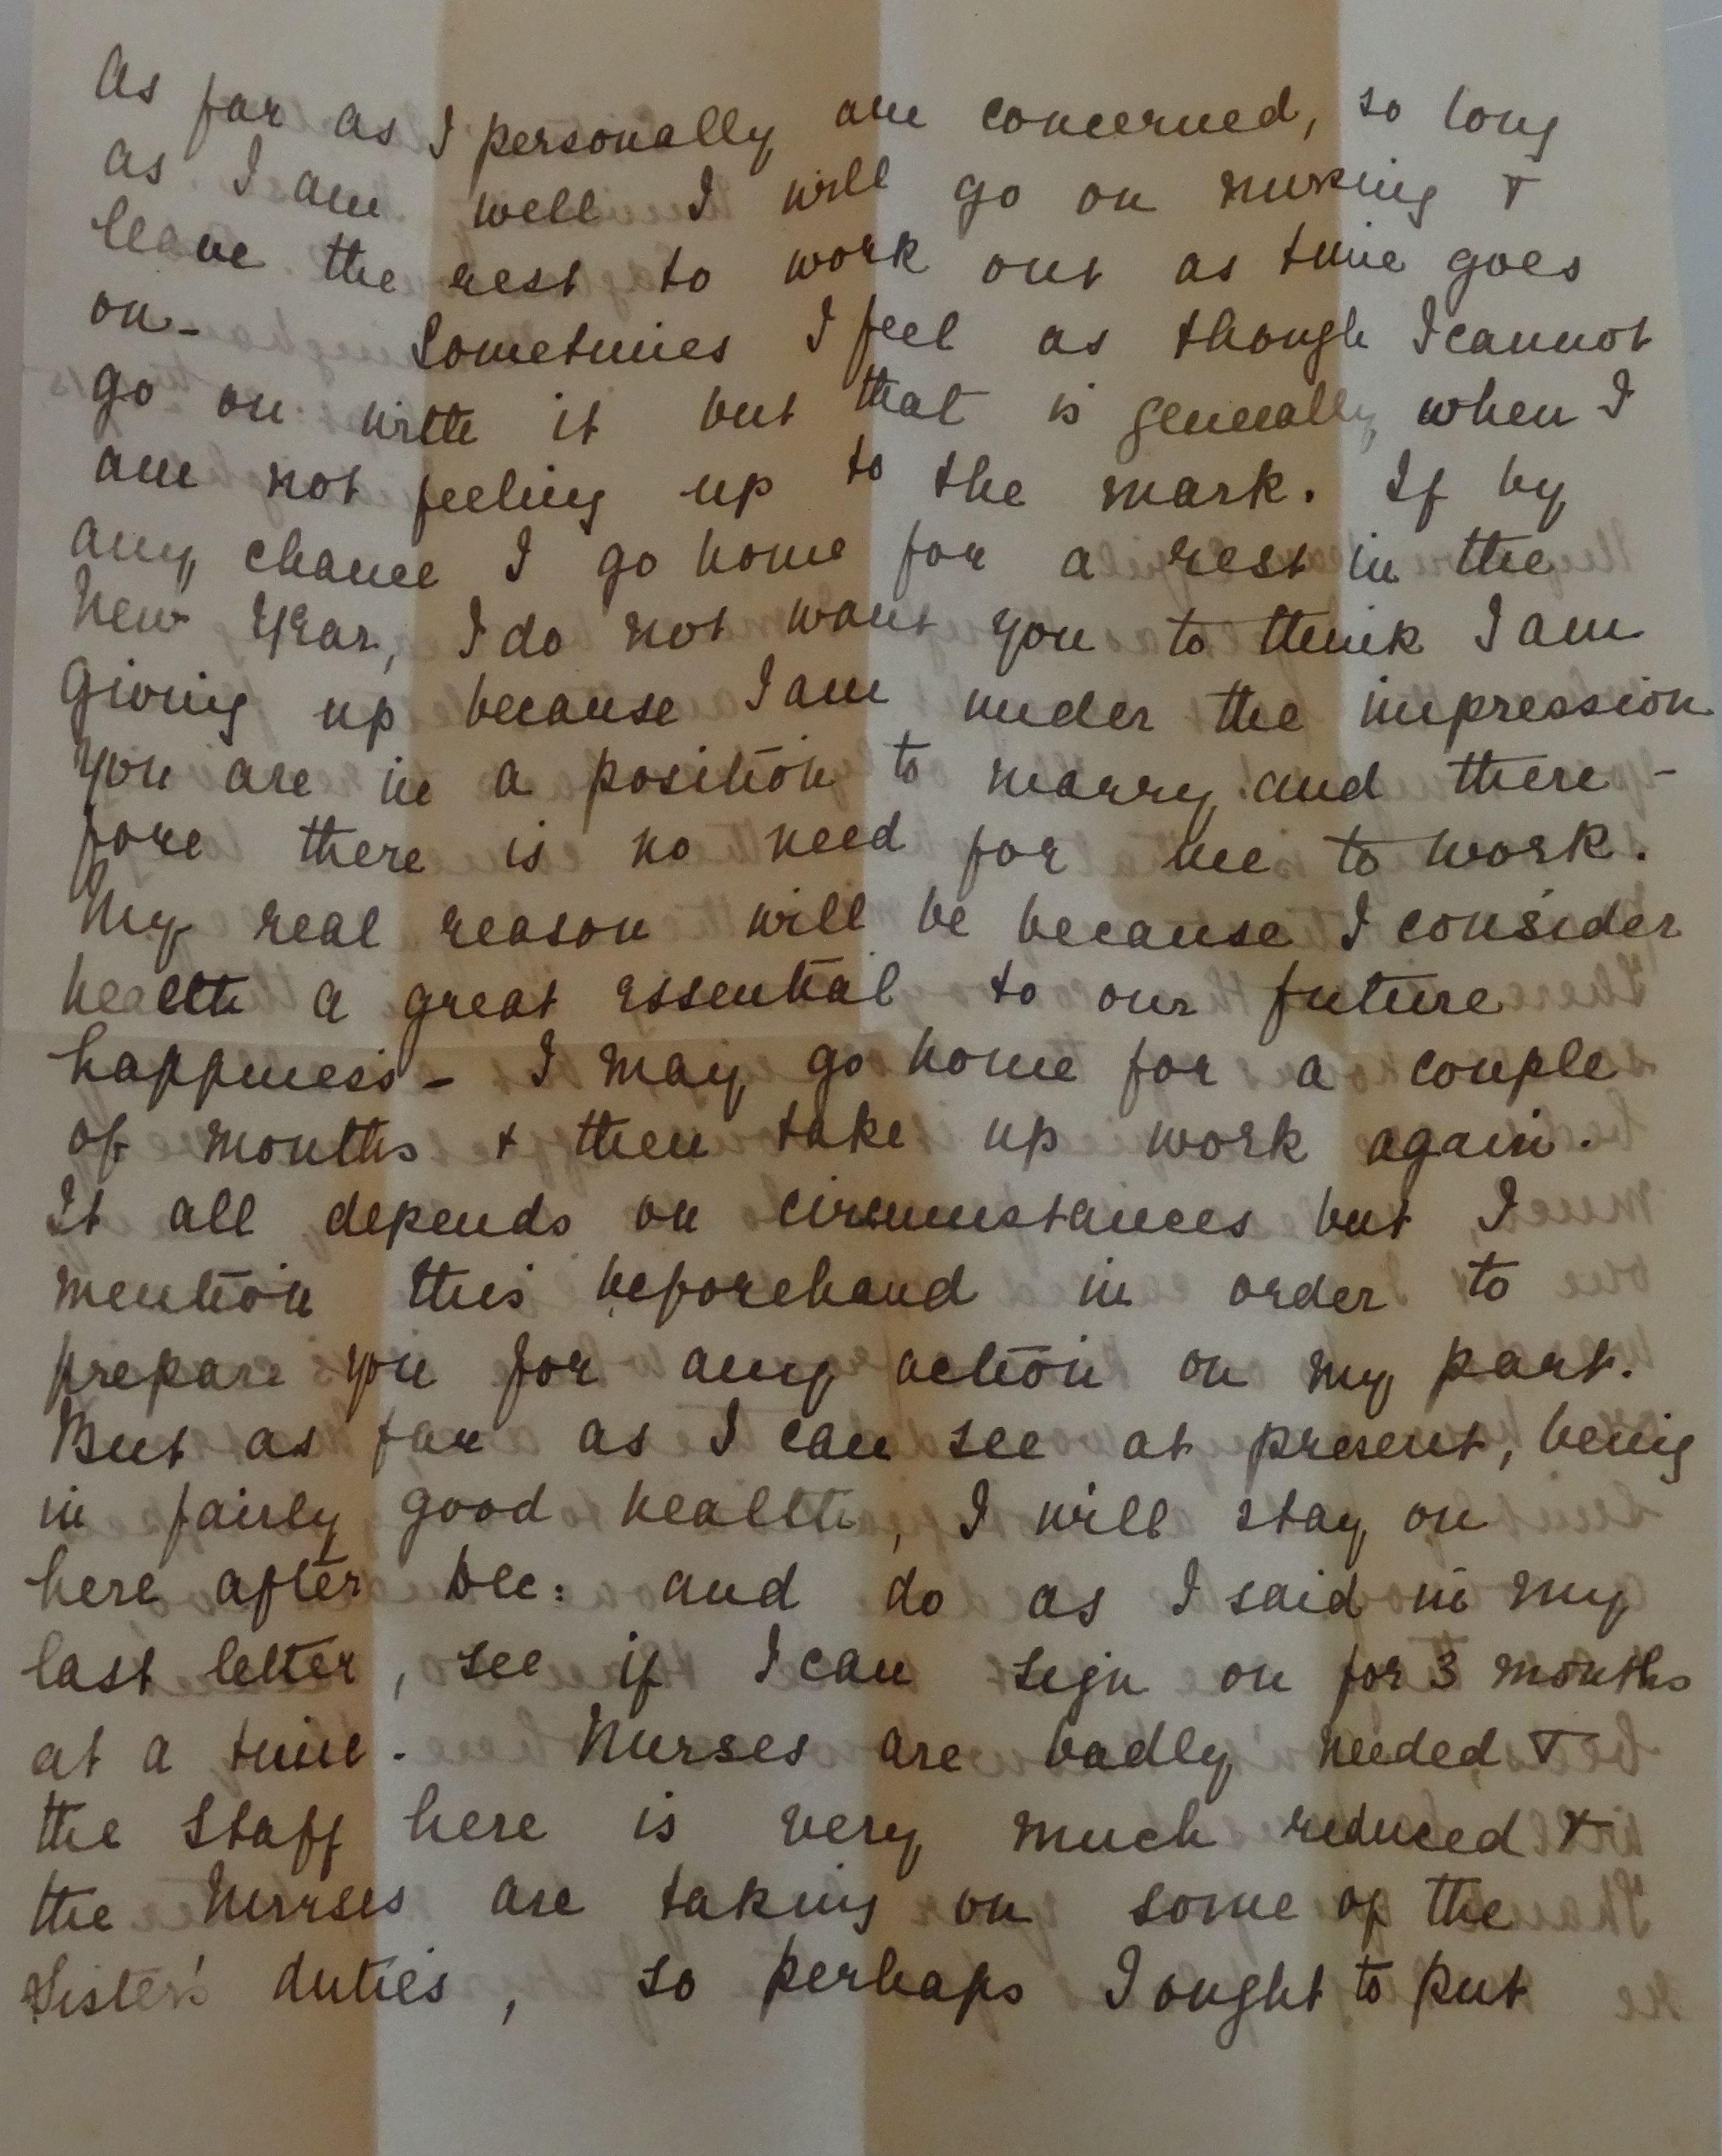 As far as I personally am concerned, so long
as I am well I will go on nursing +
leave the rest to work out as time goes
on - Sometimes I feel as though I cannot
go on with it but that is generally when I
am not feeling up to the mark. If by
any chance I go home for a rest in the
New Year, I do not want you to think I am
giving up because I am under the impression
you are in a position to marry and there-
fore there is no need for me to work.
My real reason will be because I consider
health a great essential to our future
happiness - I may go home for a couple
of months + then take up work again.
It all depends on circumstances but I
mention this beforehand in order to
prepare you for any action on my part.
But as far as I can see at present, being
in fairly good health, I will stay on
here after Dec: and do as I said in my
last letter, see if I can sign on for 3 months
at a time. Nurses are badly needed +
the Staff here is very much reduced +
the Nurses are taking on some of the
Sister's duties, so perhaps I ought to put